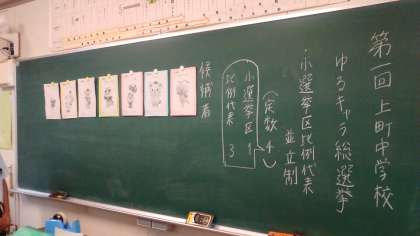 第一回 上町中学校
ゆるキャラ総選挙
小選挙区比例代表
並立制
(定数 4)
小選挙区 1
比例代表 3
候補者